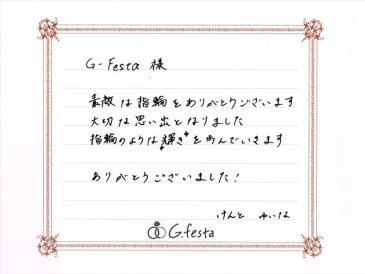 G-Festa 様
素敵な指輪をありがとうございます
大切な思い出となりました
指輪のような"輝き"を歩んでいきます
ありがとうございました!
けんと ゆいは
G.festa